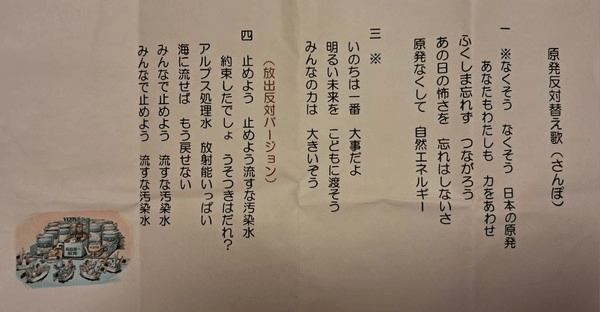 原発反対替え歌（さんぽ）
一 ※なくそう なくそう 日本の原発
あなたもわたしも 力をあわせ
ふくしま忘れず つながろう
あの日の怖さを 忘れはしないさ
原発なくして 自然エネルギー
三 ※
いのちは一番 大事だよ
明るい未来を こどもに渡そう
みんなの力は 大きいぞう
（放出反対バージョン）
四 止めよう 止めよう流すな汚染水
約束したでしょ うそつきはだれ？
アルプス処理水 放射能いっぱい
海に流せば もう戻せない
みんなで止めよう 流すな汚染水
みんなで止めよう 流すな汚染水